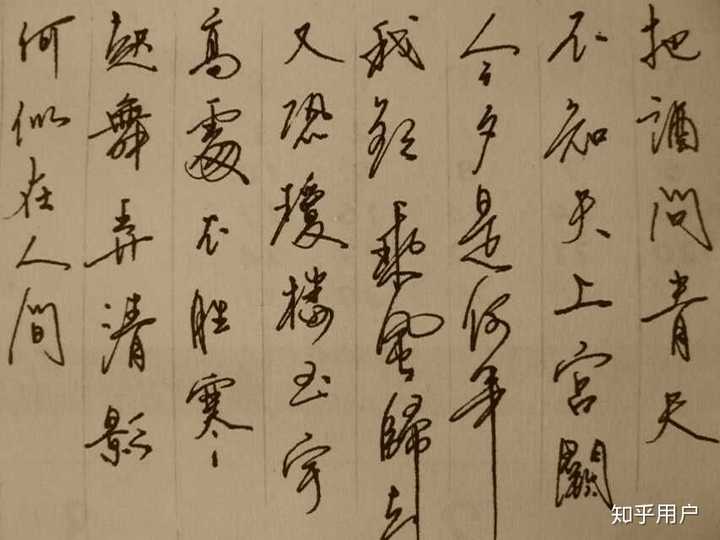 把酒问青天
不知天上宫阙
今夕是何年
我欲乘风归去
又恐琼楼玉宇
高处不胜寒
起舞弄清影
何似在人间
知乎用户